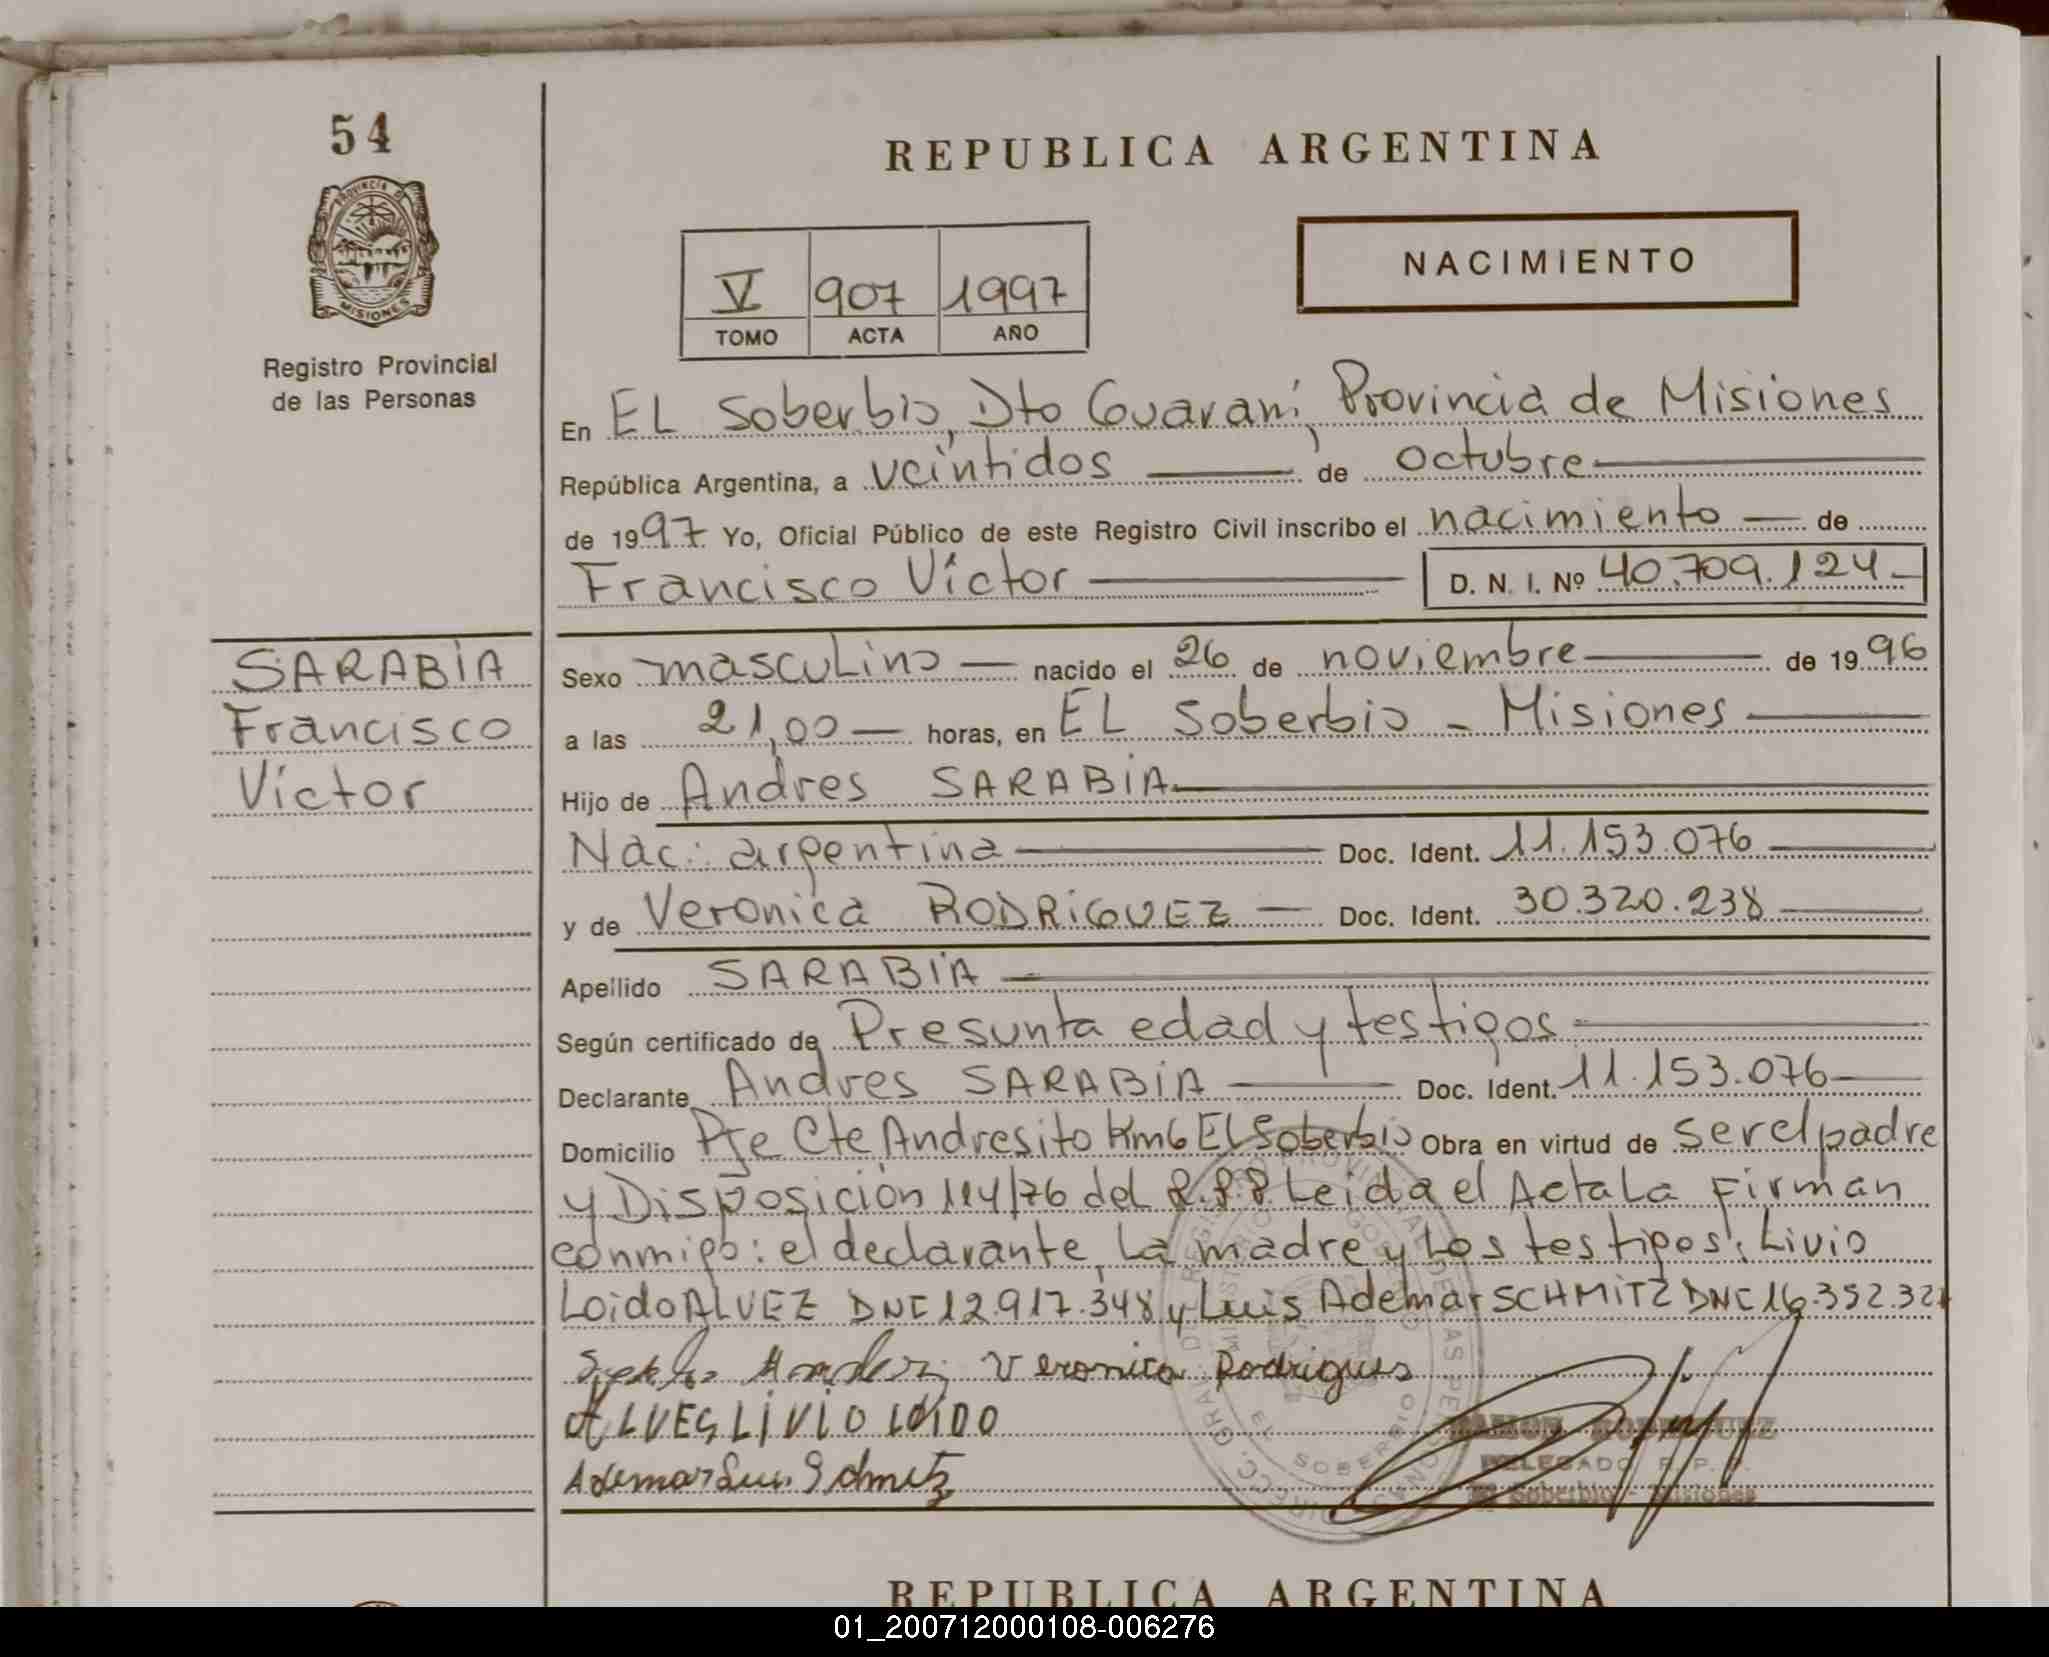 54
REPUBLICA ARGENTINA
PROVINCIA D
MISIONES
Registro Provincial
de las Personas
V 907 1997
TOMO ACTA AÑO
NACIMIENTO
En EL Soberbio, Dto Guaraní, Provincia de Misiones
República Argentina, a veintidos de octubre
de 1997 Yo, Oficial Público de este Registro Civil inscribo el nacimiento de
Francisco Víctor D. N. I. Nº 40.709.124
SARABIA
Francisco
Víctor
Sexo masculino nacido el 26 de noviembre de 1996
a las 21,00 horas, en EL Soberbio - Misiones
Hijo de Andres SARABIA
Nac: argentina Doc. Ident. 11.153.076
y de Veronica RODRIGUEZ Doc. Ident. 30.320.238
Apellido SARABIA
Según certificado de Presunta edad y testigos
Declarante Andres SARABIA Doc. Ident. 11.153.076
Domicilio Pje Cte Andresito Km6 El Soberbio Obra en virtud de ser el padre
y Disposición 114/76 del R.P.P. Leida el Acta La Firman
conmigo: el declarante, la madre y Los testigos: Livio
Loido ALVEZ DNI 12.917.348 y Luis Ademar SCHMITZ DNI 16.352.32
Veronica Rodrigues
ALVES LIVIO LOIDO
Ademar Luis
RAMON RODRIGUEZ
DELEGADO R. P. P.
El Soberbio - Misiones
REPUBLICA ARGENTINA
01_200712000108-006276